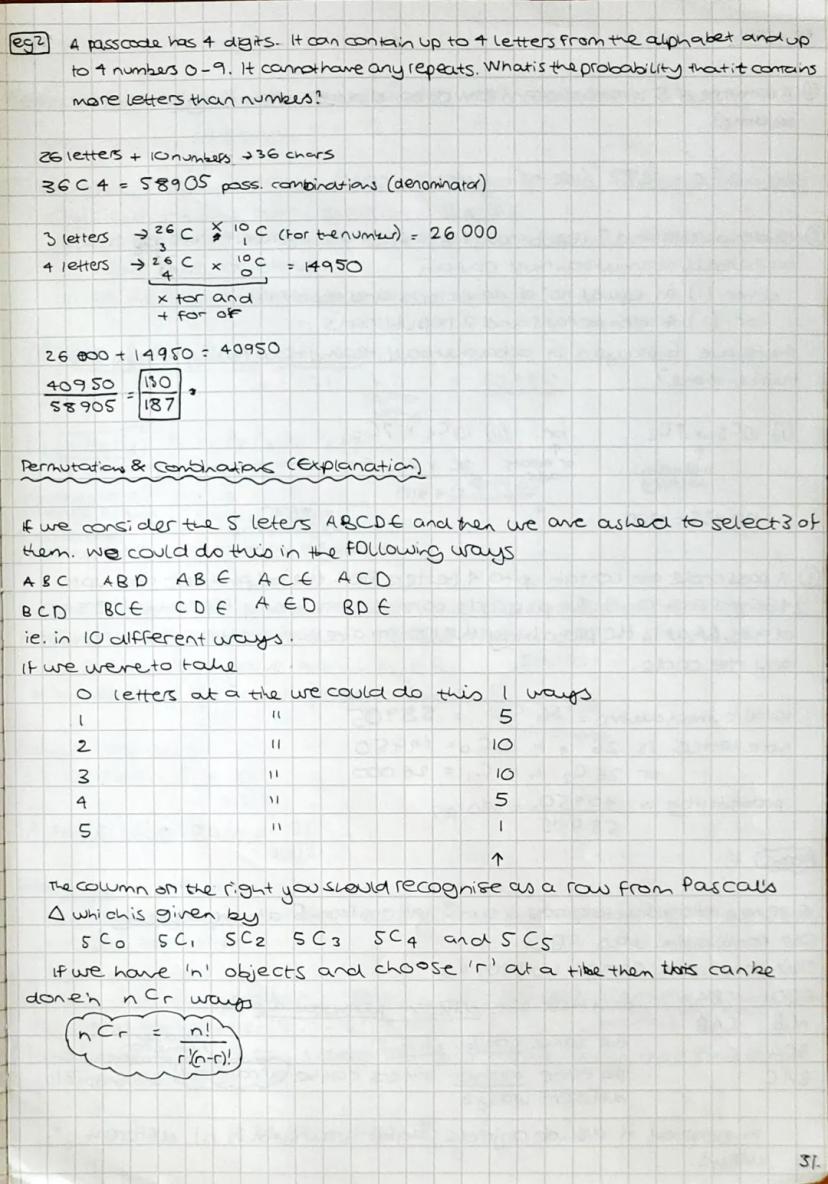 eg2 A passcode has 4 digits. It can contain up to 4 letters from the alphabet and up
to 4 numbers 0-9. It cannot have any repeats. What is the probability that it contains
more letters than numbers?
26 letters + 10 numbers → 36 chars
36 C 4 = 58905 poss. combinations (denominator)
3 letters → ²⁶C₃ × ¹⁰C₁ (for the number) = 26 000
4 letters → ²⁶C₄ × ¹⁰C₀ = 14950
x for and
+ for or
26 000 + 14950 = 40950
40950/58905 = 130/187.
Permutations & Combinations (Explanation)
If we consider the 5 leters ABCDE and then we are asked to select 3 of
them. We could do this in the following ways
ABC ABD ABE ACE ACD
BCD BCE CDE AED BDE
ie. in 10 different ways.
If we were to take
0 letters at a time we could do this 1 ways
1 " 5
2 " 10
3 " 10
4 " 5
5 " 1
↑
The column on the right you should recognise as a row from Pascal's
Δ which is given by
5C0 5C1 5C2 5C3 5C4 and 5C5
If we have 'n' objects and choose 'r' at a time then this can be
done in nCr ways
nCr = n!/r!(n-r)!
31.